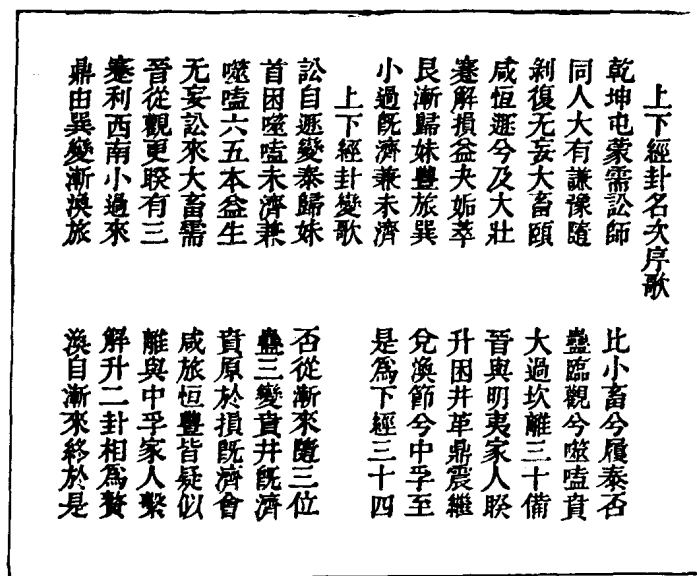 上下經卦名次序歌
乾坤屯蒙需訟師　比小畜兮履泰否
同人大有謙豫隨　蠱臨觀兮噬嗑賁
剝復无妄大畜頤　大過坎離三十備
咸恒遯兮及大壯　晉與明夷家人睽
蹇解損益夬姤萃　升困井革鼎震繼
艮漸歸妹豐旅巽　兌渙節兮中孚至
小過旣濟兼未濟　是爲下經三十四
上下經卦變歌
訟自遯變泰歸妹　否從漸來隨三位
首困噬嗑未濟兼　蠱三變賁井旣濟
噬嗑六五本益生　賁原於損旣濟會
无妄訟來大畜需　咸旅恒豐皆疑似
晉從觀更睽有三　離與中孚家人繫
蹇利西南小過來　解升二卦相爲贅
鼎由巽變漸渙旅　渙自漸來終於是